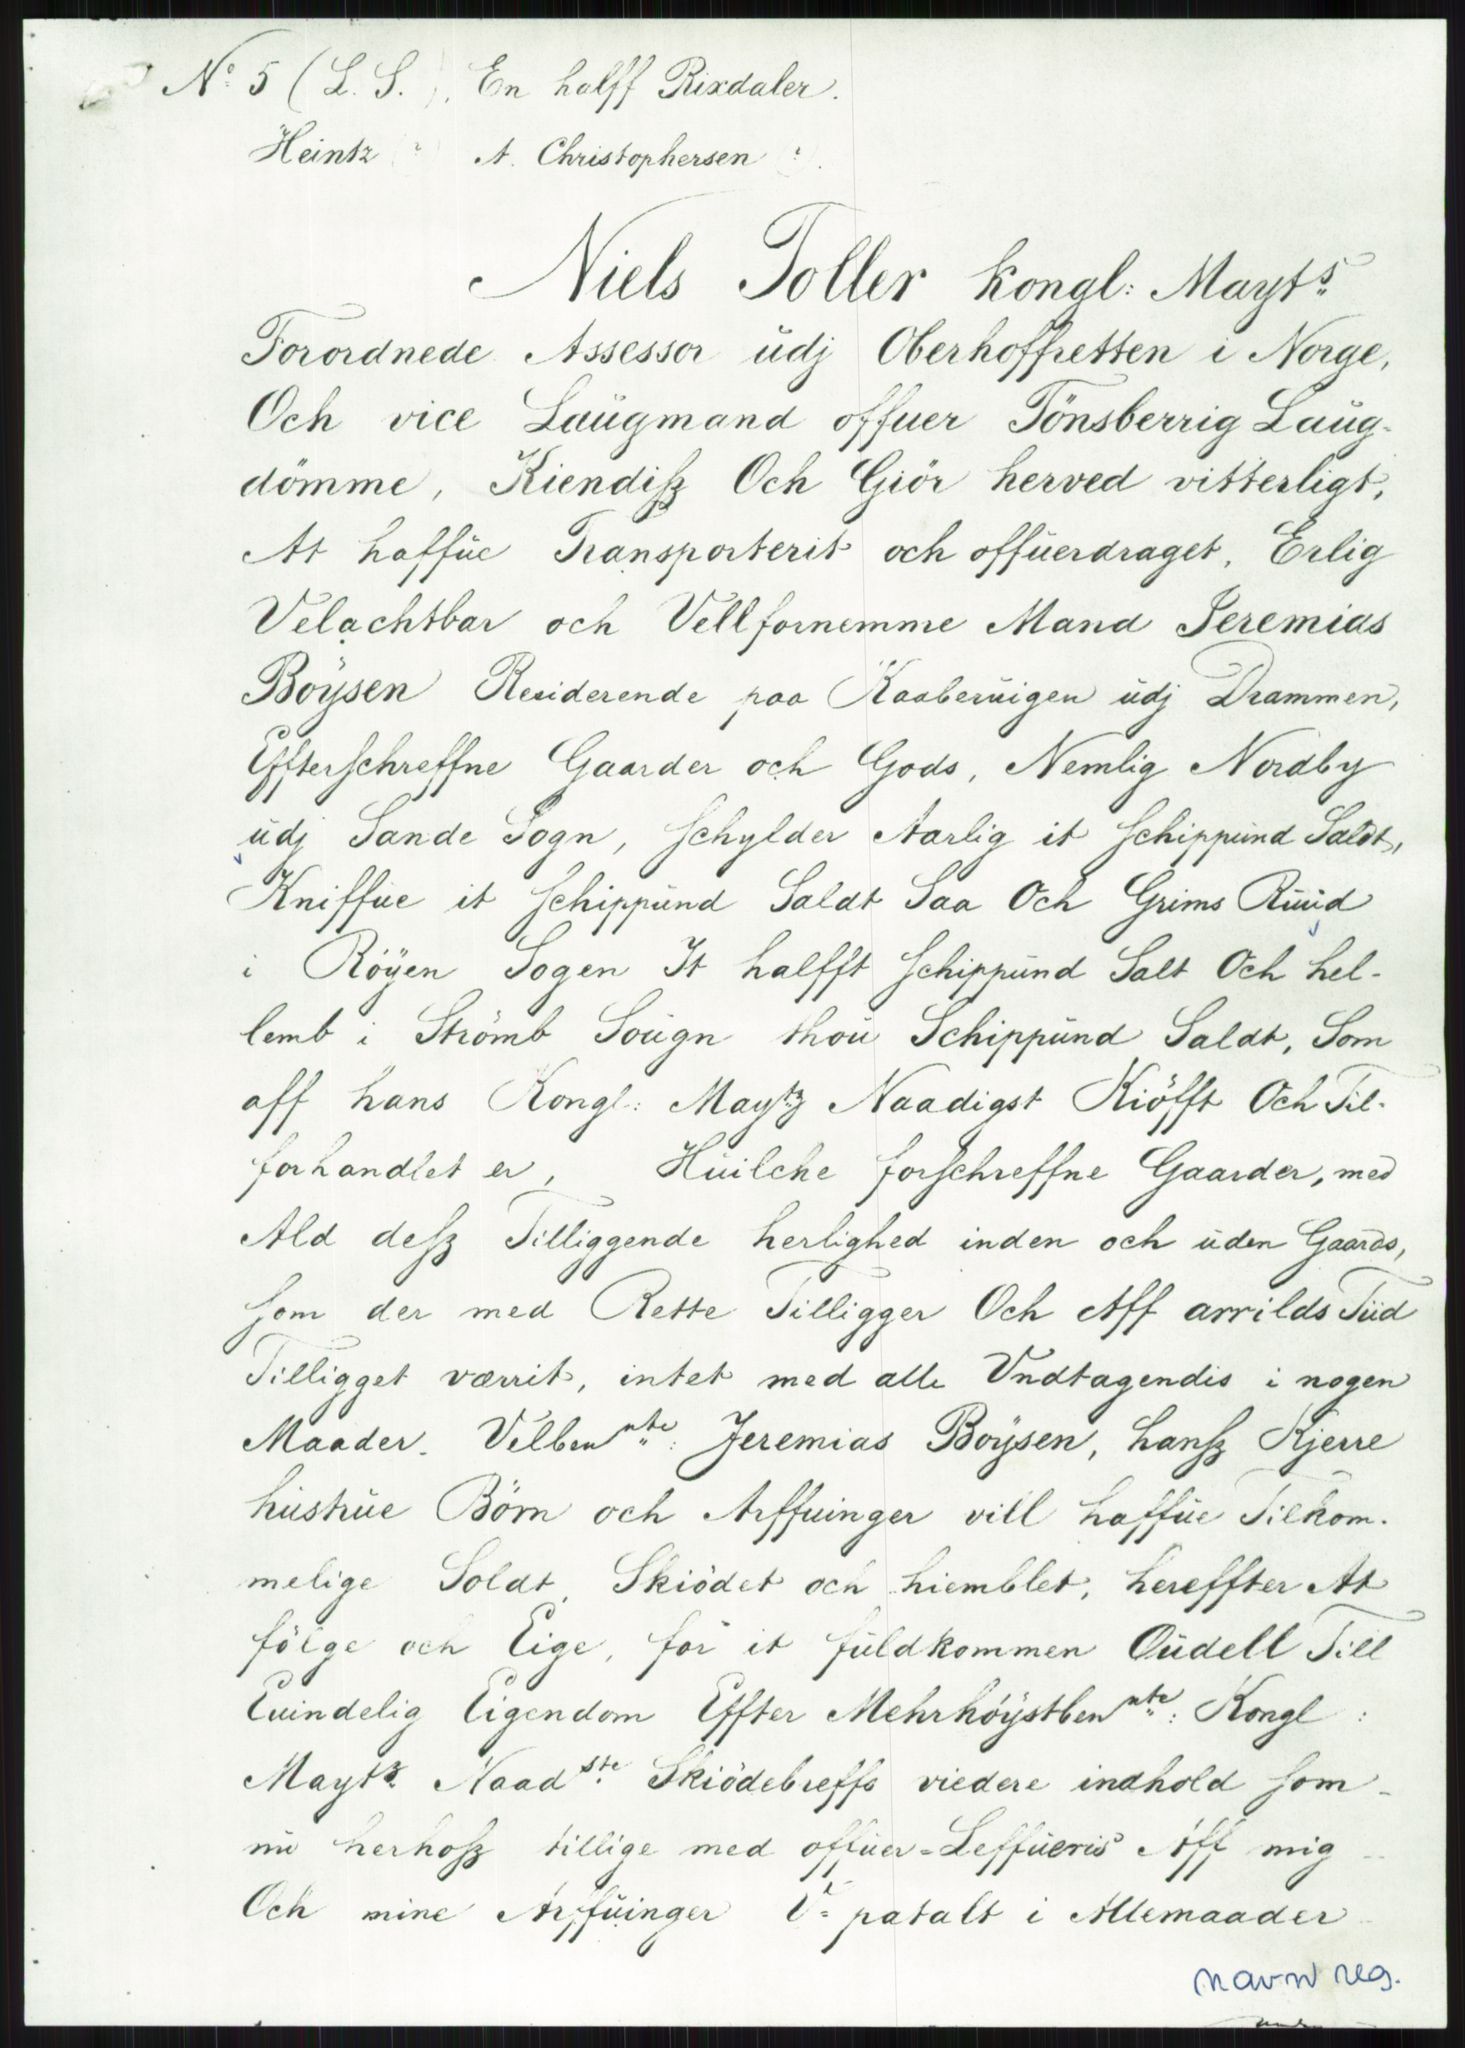 No 5 (L. S.). En halff Rixdaler.
Heintz (:) A. Christophersen (:).
Niels Toller Kongl: Mayts
Forordnede Assessor udj Oberhoffretten i Norge,
Och vice Laugmand offuer Tönsberrig Laug-
dömme, Kiendisz Och Giör herved vitterligt,
At haffue Transporterit och offuerdraget, Erlig
Velachtbar och Vellfornemme Mand Jeremias
Böysen Residerende paa Kaaberuigen udj Drammen,
Efterschreffne Gaarder och Gods, Nemlig Nordby
udj Sande Sogn, schylder Aarlig it schippund Saldt,
Kniffue it schippund Saldt Saa Och Grims Ruud
i Röyen Sogen It halfft schippund Salt Och hel-
lemb i Strömb Sougn thou Schippund Saldt, Som
aff hans Kongl: Maytz Naadigst Kiöfft Och Til-
forhandlet er, Huilche forschreffne Gaarder, med
Ald desz Tilliggende herlighed inden och uden Gaards,
som der med Rette Tilligger Och Aff arrilds Tiid
Tilligget værrit, intet med alle Vndtagendis i nogen
Maader. Velbennte: Jeremias Böysen, hansz Kjerre
hustrue Börn och Arffuinger vill haffue Tilkom-
melige Soldt, Skiödet och hiemblet, hereffter At
fölge och Eige, for it fuldkommen Oudell Till
Euindelig Eigendom Effter Mehrhöystbennte: Kongl:
Maytz Naadste Skiödebreffs viedere indhold som
nu herhosz tillige med offuer-Leffueris Aff mig
Och mine Arffuinger V- patalt i Allemaader
navn reg.